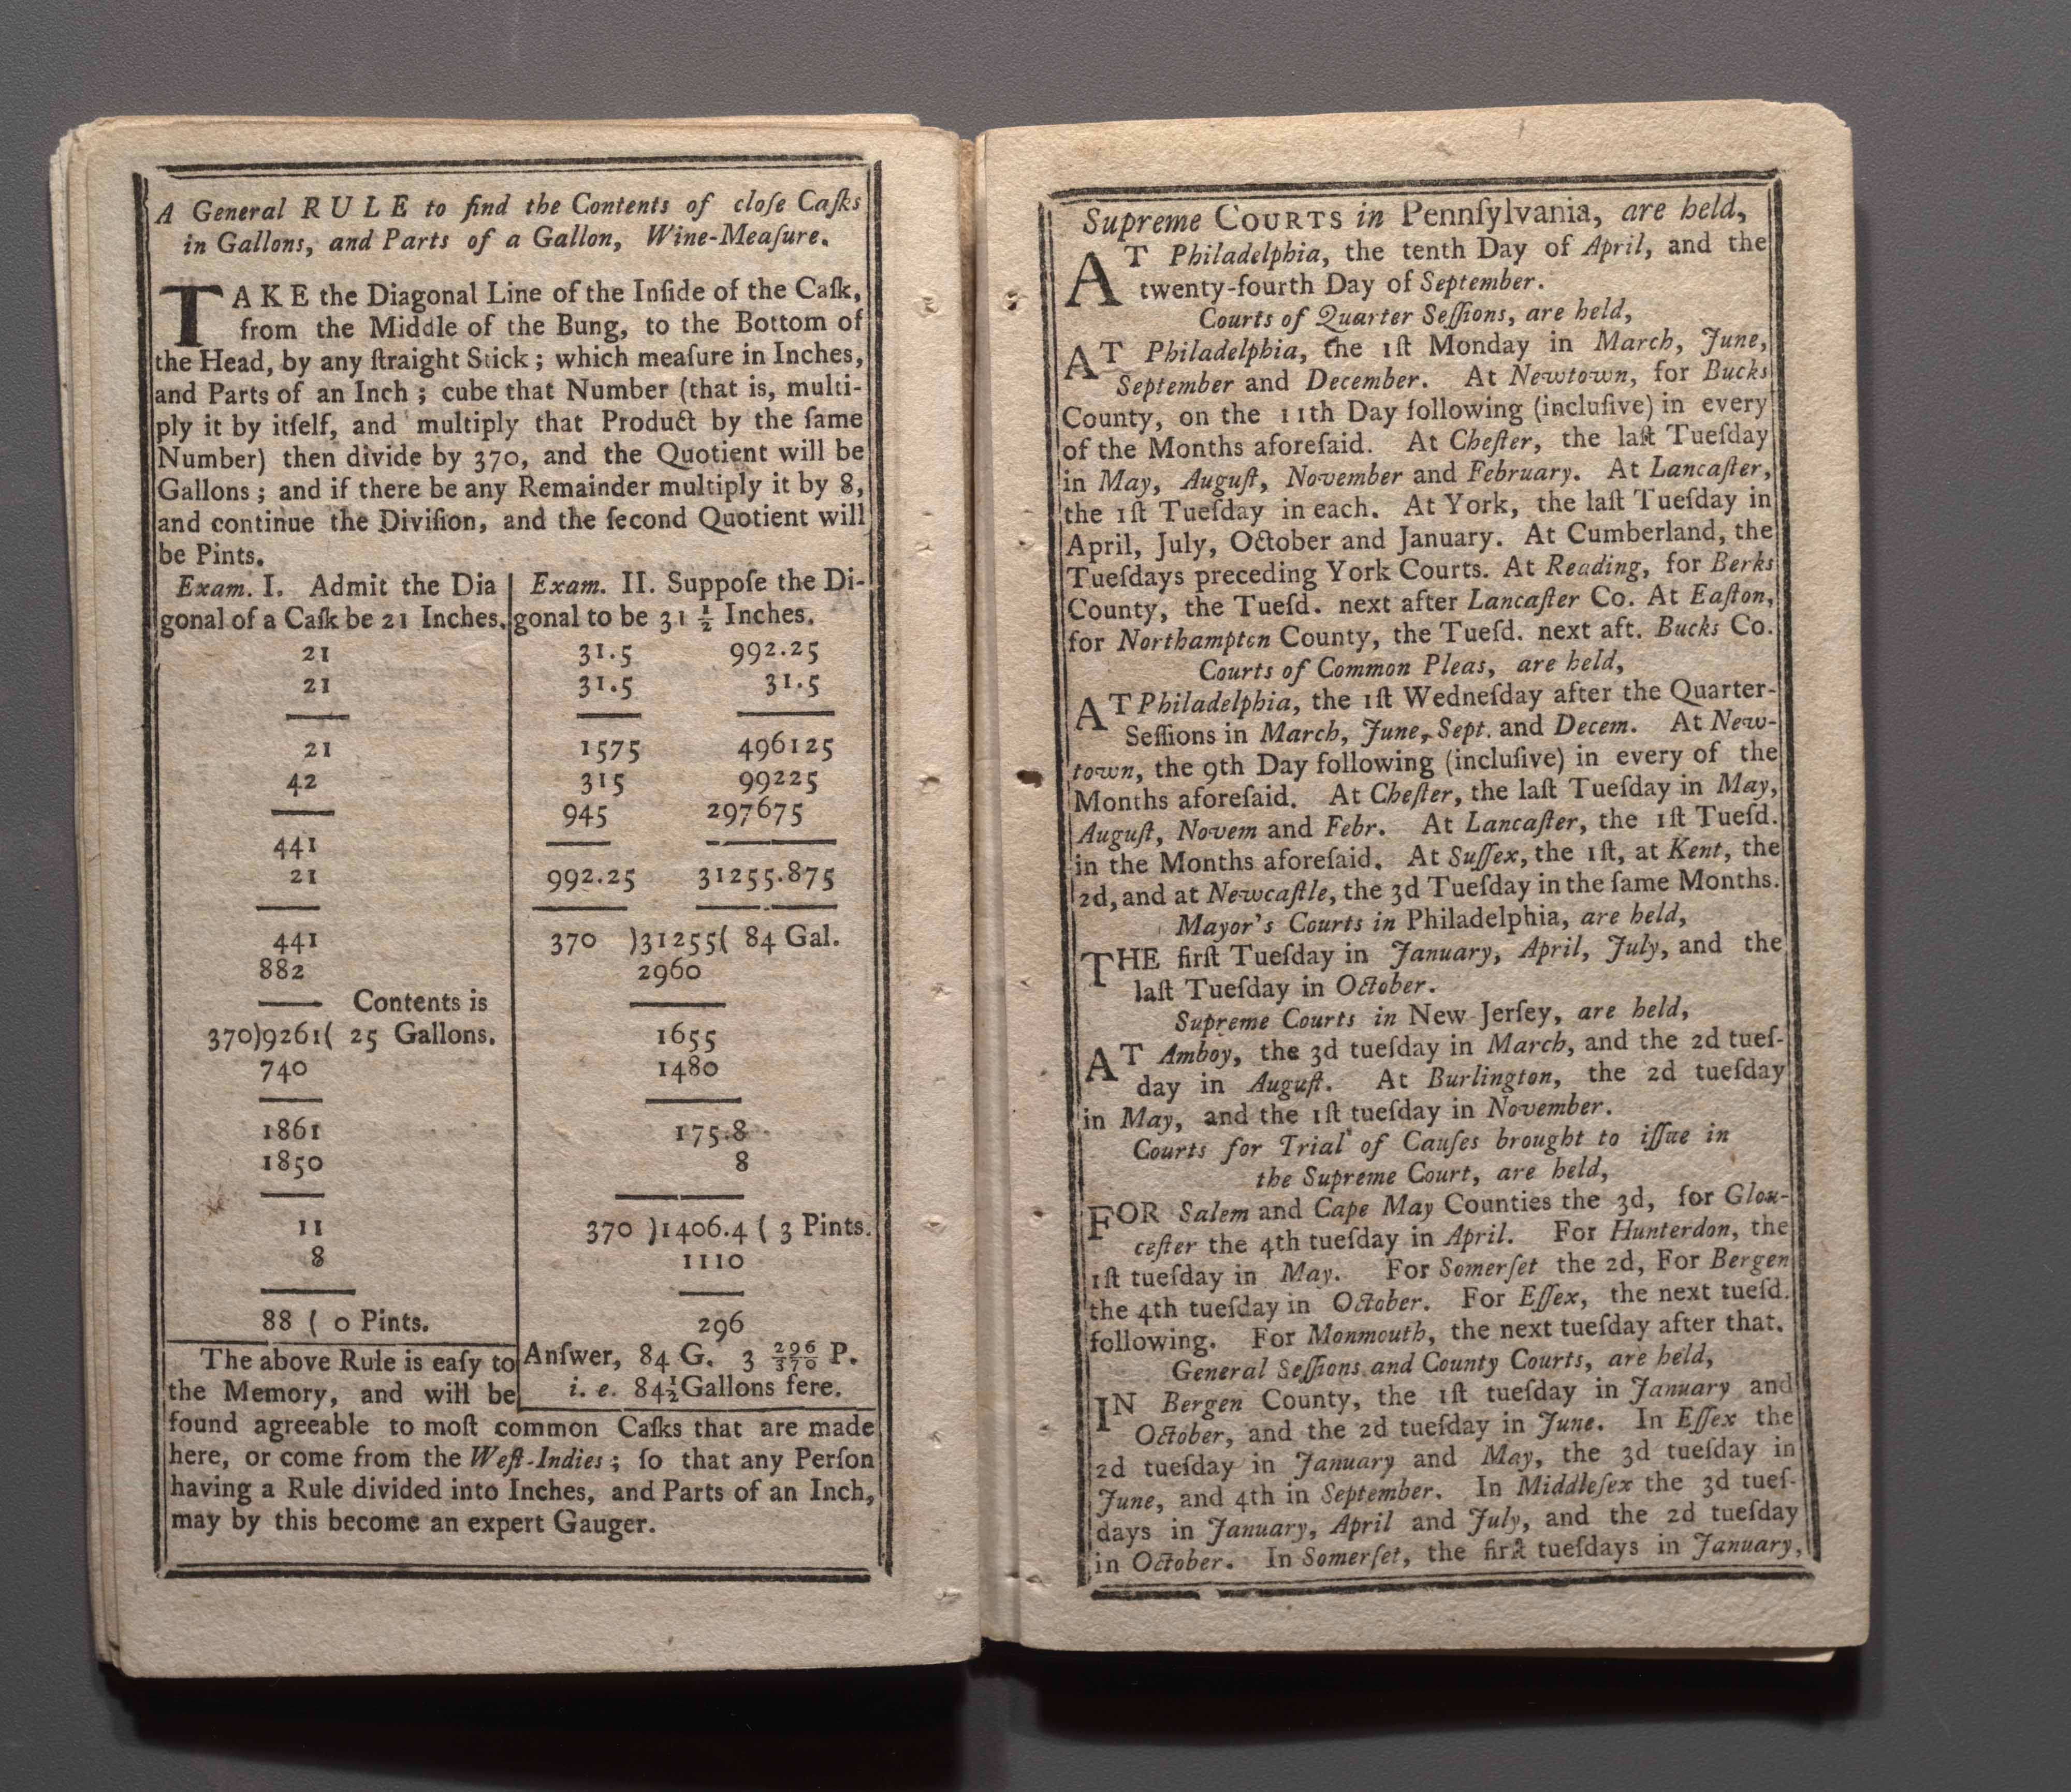 A General RULE to find the Contents of cloſe Caſks
in Gallons, and Parts of a Gallon, Wine-Meaſure.
TAKE the Diagonal Line of the Inſide of the Caſk,
from the Middle of the Bung, to the Bottom of
the Head, by any ſtraight Stick; which meaſure in Inches,
and Parts of an Inch; cube that Number (that is, multi-
ply it by itſelf, and multiply that Product by the ſame
Number) then divide by 370, and the Quotient will be
Gallons; and if there be any Remainder multiply it by 8,
and continue the Diviſion, and the ſecond Quotient will
be Pints.
Exam. I. Admit the Dia
gonal of a Caſk be 21 Inches.
21
21
21
42
441
21
441
882
Contents is
370)9261( 25 Gallons.
740
1861
1850
11
8
88 ( 0 Pints.
Exam. II. Suppoſe the Di-
gonal to be 31 1/2 Inches.
31.5 992.25
31.5 31.5
1575 496125
315 99225
945 297675
992.25 31255.875
370 )31255( 84 Gal.
2960
1655
1480
175.8
8
370 )1406.4 ( 3 Pints.
1110
296
Anſwer, 84 G. 3 296/370 P.
i. e. 84 1/2 Gallons fere.
The above Rule is eaſy to
the Memory, and will be
found agreeable to moſt common Caſks that are made
here, or come from the Weſt-Indies; ſo that any Perſon
having a Rule divided into Inches, and Parts of an Inch,
may by this become an expert Gauger.
Supreme COURTS in Pennſylvania, are held,
AT Philadelphia, the tenth Day of April, and the
twenty-fourth Day of September.
Courts of Quarter Seſſions, are held,
AT Philadelphia, the 1ſt Monday in March, June,
September and December. At Newtown, for Bucks
County, on the 11th Day following (incluſive) in every
of the Months aforeſaid. At Cheſter, the laſt Tueſday
in May, Auguſt, November and February. At Lancaſter,
the 1ſt Tueſday in each. At York, the laſt Tueſday in
April, July, October and January. At Cumberland, the
Tueſdays preceding York Courts. At Reading, for Berks
County, the Tueſd. next after Lancaſter Co. At Eaſton,
for Northampton County, the Tueſd. next aft. Bucks Co.
Courts of Common Pleas, are held,
AT Philadelphia, the 1ſt Wedneſday after the Quarter-
Seſſions in March, June, Sept. and Decem. At New-
town, the 9th Day following (incluſive) in every of the
Months aforeſaid. At Cheſter, the laſt Tueſday in May,
Auguſt, Novem and Febr. At Lancaſter, the 1ſt Tueſd.
in the Months aforeſaid. At Suſſex, the 1ſt, at Kent, the
2d, and at Newcaſtle, the 3d Tueſday in the ſame Months.
Mayor's Courts in Philadelphia, are held,
THE firſt Tueſday in January, April, July, and the
laſt Tueſday in October.
Supreme Courts in New Jerſey, are held,
AT Amboy, the 3d tueſday in March, and the 2d tueſ-
day in Auguſt. At Burlington, the 2d tueſday
in May, and the 1ſt tueſday in November.
Courts for Trial of Cauſes brought to iſſue in
the Supreme Court, are held,
FOR Salem and Cape May Counties the 3d, for Glou-
ceſter the 4th tueſday in April. For Hunterdon, the
1ſt tueſday in May. For Somerſet the 2d, For Bergen
the 4th tueſday in October. For Eſſex, the next tueſd.
following. For Monmouth, the next tueſday after that.
General Seſſions and County Courts, are held,
IN Bergen County, the 1ſt tueſday in January and
October, and the 2d tueſday in June. In Eſſex the
2d tueſday in January and May, the 3d tueſday in
June, and 4th in September. In Middleſex the 3d tueſ-
days in January, April and July, and the 2d tueſday
in October. In Somerſet, the firſt tueſdays in January,